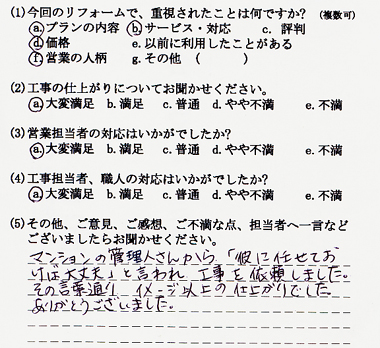 (1)今回のリフォームで、重視されたことは何ですか? (複数可)
a.プランの内容 b.サービス・対応 c. 評判
d.価格 e.以前に利用したことがある
f.営業の人柄 g.その他 ( )
(2)工事の仕上がりについてお聞かせください。
a.大変満足 b.満足 c.普通 d.やや不満 e.不満
(3)営業担当者の対応はいかがでしたか?
a.大変満足 b.満足 c.普通 d.やや不満 e.不満
(4)工事担当者、職人の対応はいかがでしたか?
a.大変満足 b.満足 c.普通 d.やや不満 e.不満
(5)その他、ご意見、ご感想、ご不満な点、担当者へ一言など
ございましたらお聞かせください。
マンションの管理人さんから「彼に任せてお
けば大丈夫」と言われ 工事を依頼しました。
その言葉通り イメージ以上の仕上がりでした。
ありがとうございました。